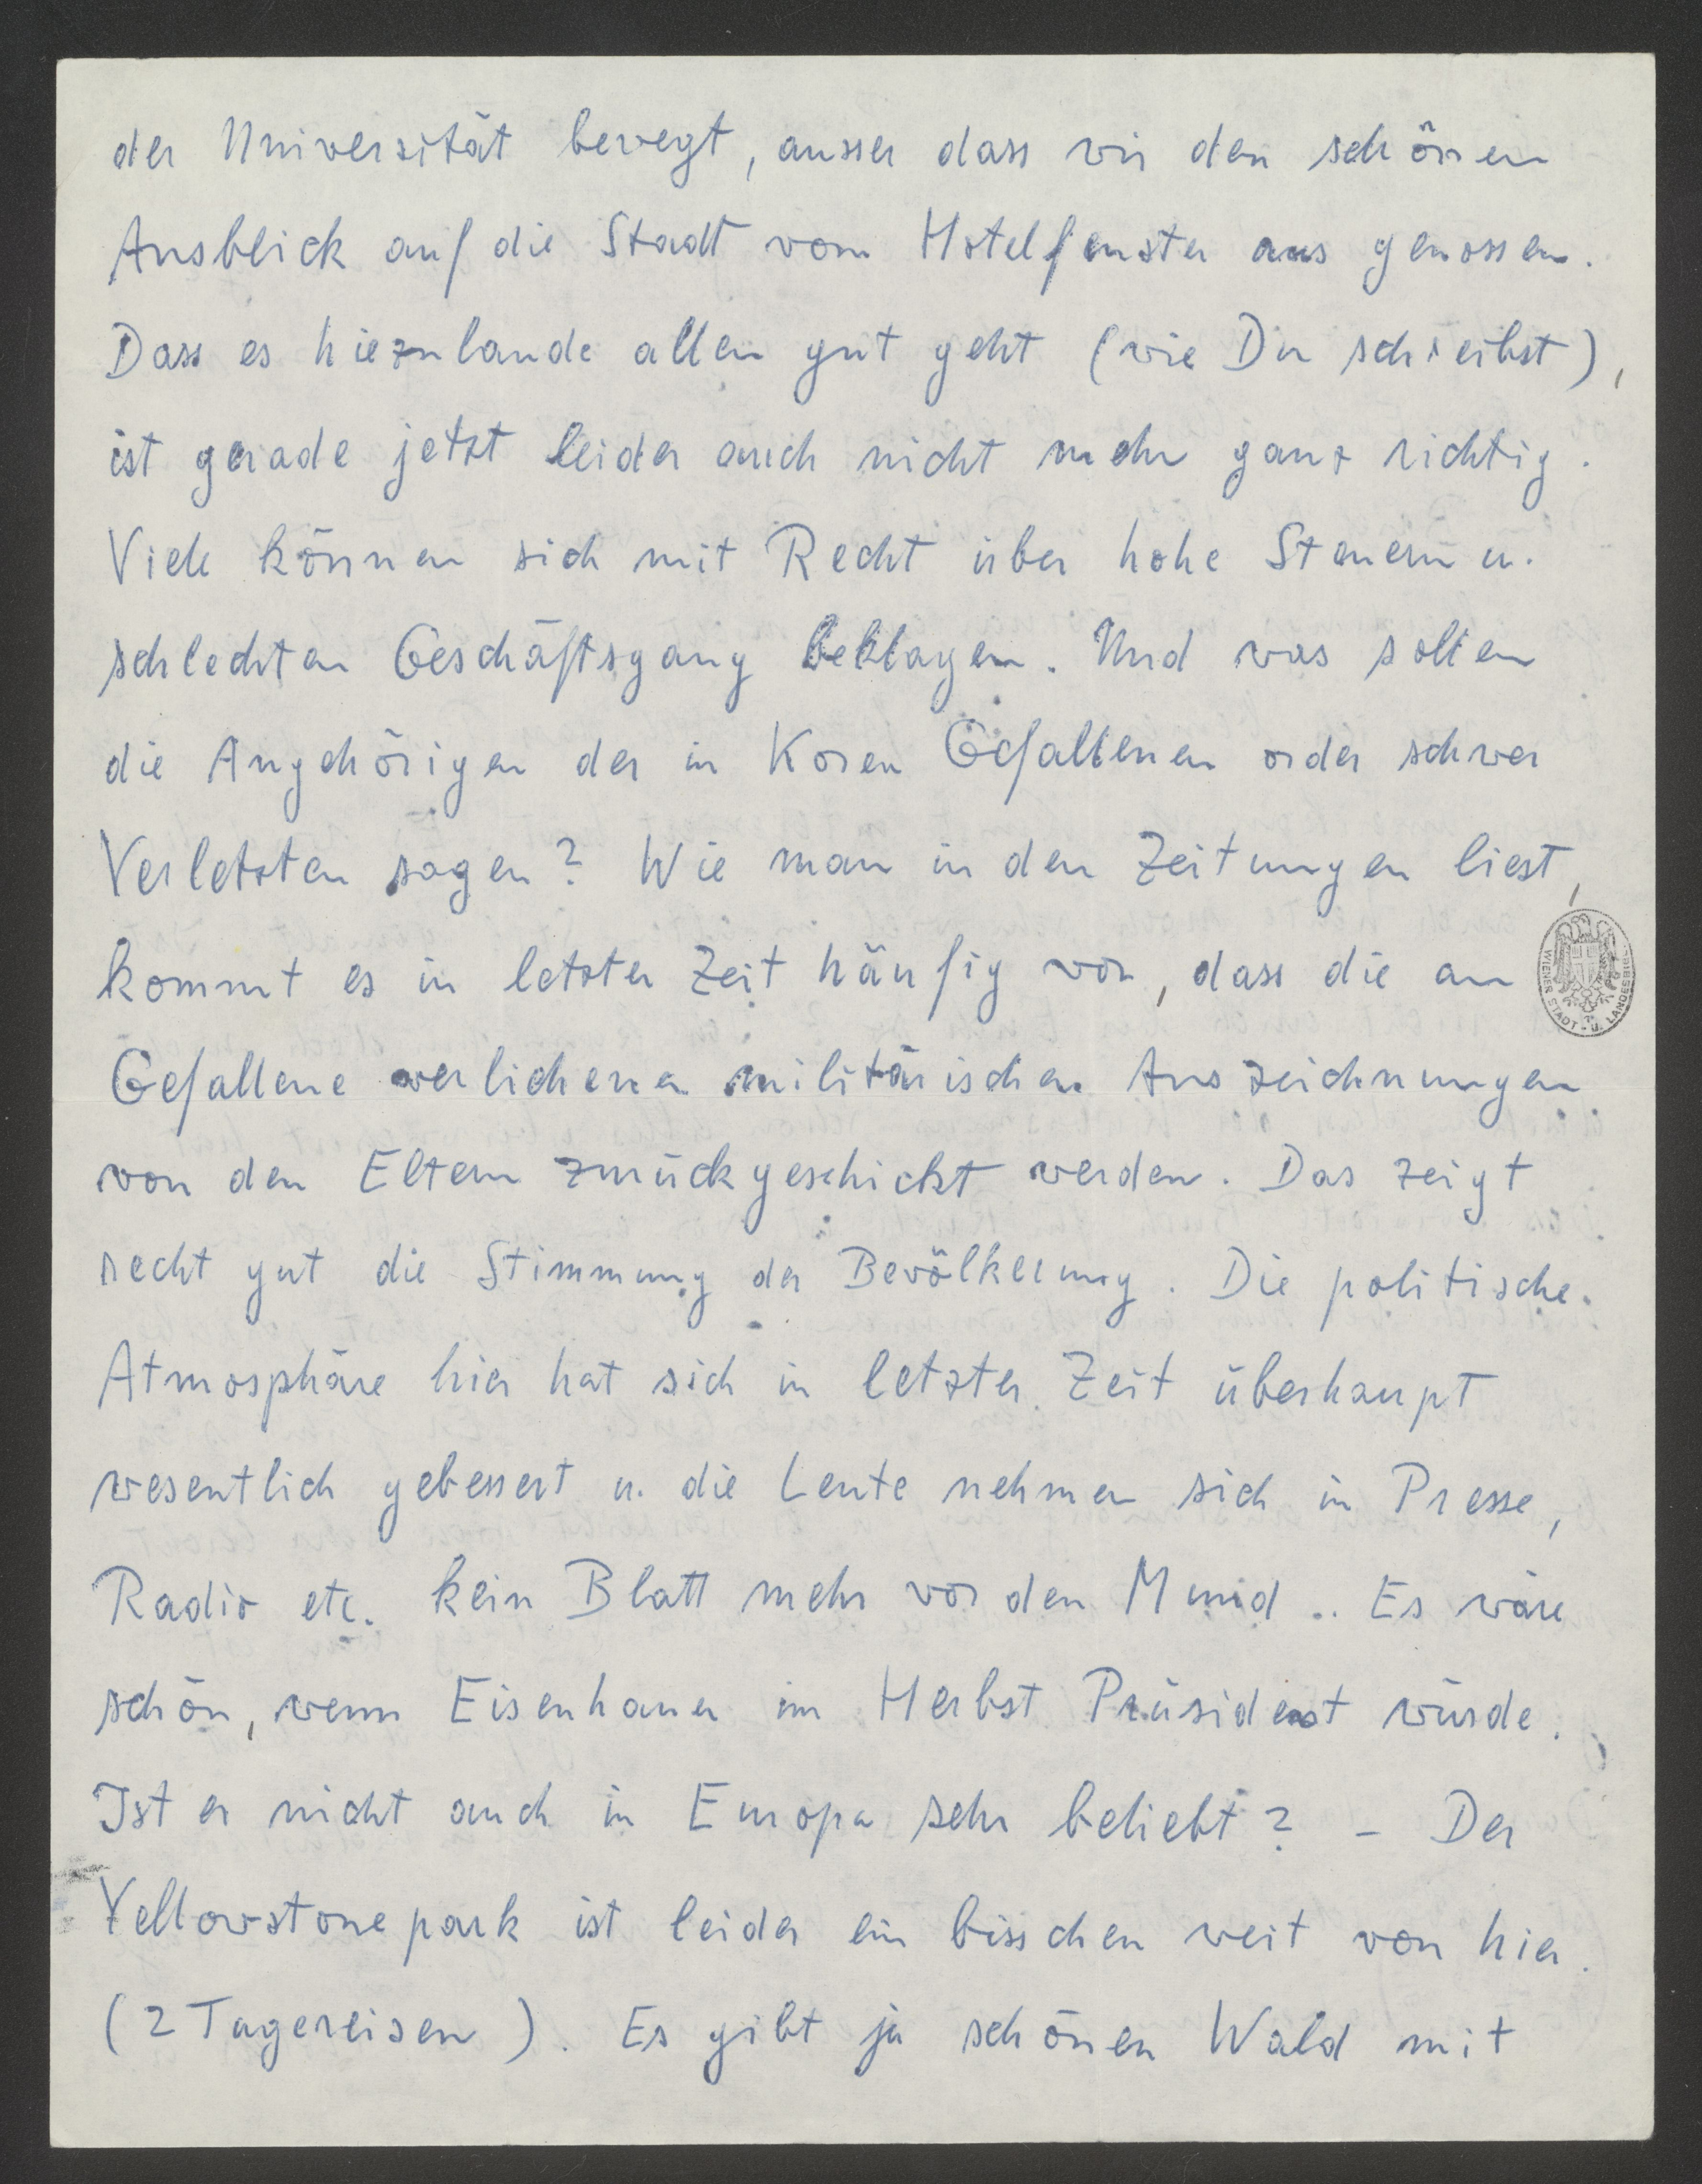 der Universität bewegt, ausser dass wir den schönen
Ausblick auf die Stadt vom Hotelfenster aus genossen.
Dass es hiezulande allen gut geht (wie Du schreibst),
ist gerade jetzt leider auch nicht mehr ganz richtig.
Viele können sich mit Recht über hohe Steuern u.
schlechten Geschäftsgang beklagen. Und was sollen
die Angehörigen der in Korea Gefallenen oder schwer
Verletzten sagen? Wie man in den Zeitungen liest,
kommt es in letzter Zeit häufig vor, dass die an
WIENER STADT- U. LANDESBIBL.
Gefallene verliehenen militärischen Auszeichnungen
von den Eltern zurückgeschickt werden. Das zeigt
recht gut die Stimmung der Bevölkerung. Die politische
Atmosphäre hier hat sich in letzter Zeit überhaupt
wesentlich gebessert u. die Leute nehmen sich in Presse,
Radio etc. kein Blatt mehr vor den Mund.. Es wäre
schön, wenn Eisenhauer im Herbst Präsident würde.
Ist er nicht auch in Europa sehr beliebt? – Der
Yellowstonepark ist leider ein bisschen weit von hier.
(2 Tagereisen). Es gibt ja schönen Wald mit